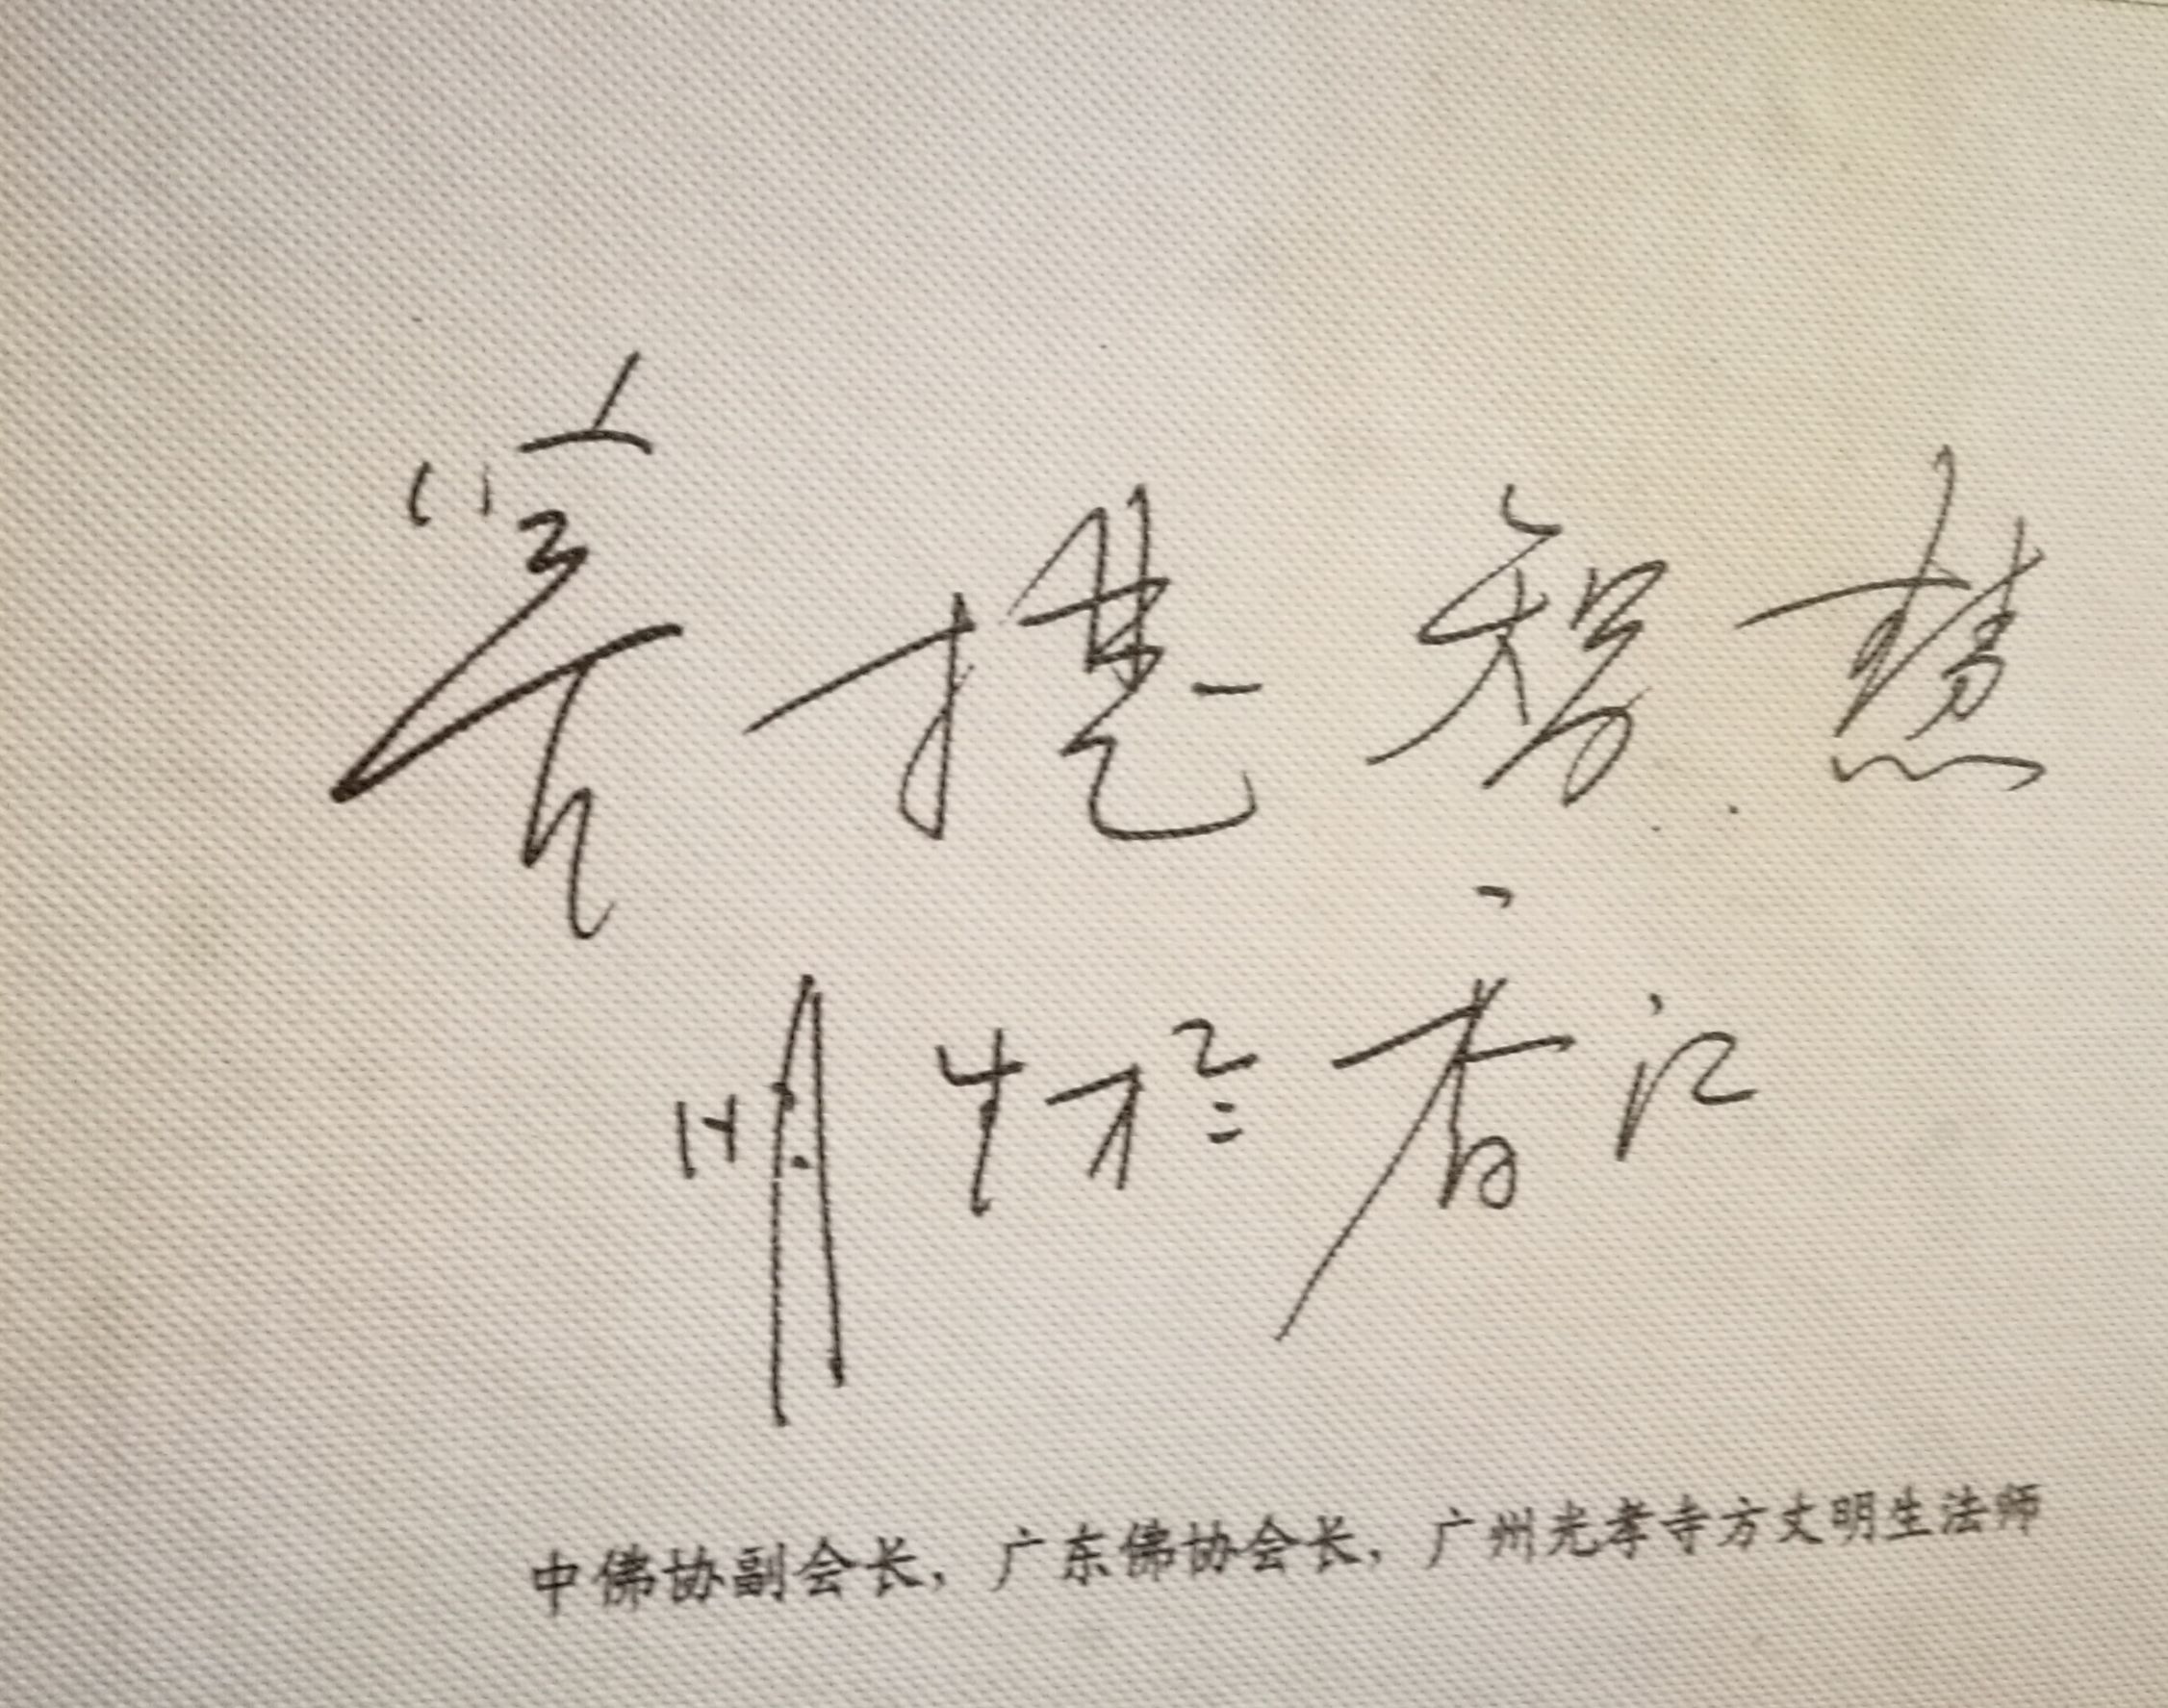 菩提智慧
明生於香江
中佛协副会长，广东佛协会长，广州光孝寺方丈明生法师